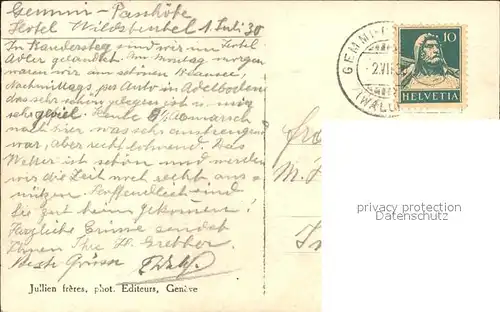 Gemmi-Passhöhe
Hotel Wildstrubel 1 Juli 30
In Kandersteg sind wir im Hotel
Adler gelandet. Am Montag morgen
waren wir am schönen Blausee,
Nachmittags per Auto in Adelboden
das sehr schön gelegen ist u. mir
sehr gefiel. Heute
nach hier was sehr anstrengend
war, aber recht lohnend. Das
Wetter ist schön und werden
wir die Zeit noch recht aus-
nützen. Hoffendlich sind
Sie gut heim gekommen!
Herzliche Grüsse sendet
Ihnen Ihre H.
Besten Grüsse
Jullien frères, phot. Editeurs, Genève
GEMMI-P
2.VII
(WALLI
10
HELVETIA
privacy protection
Datenschutz